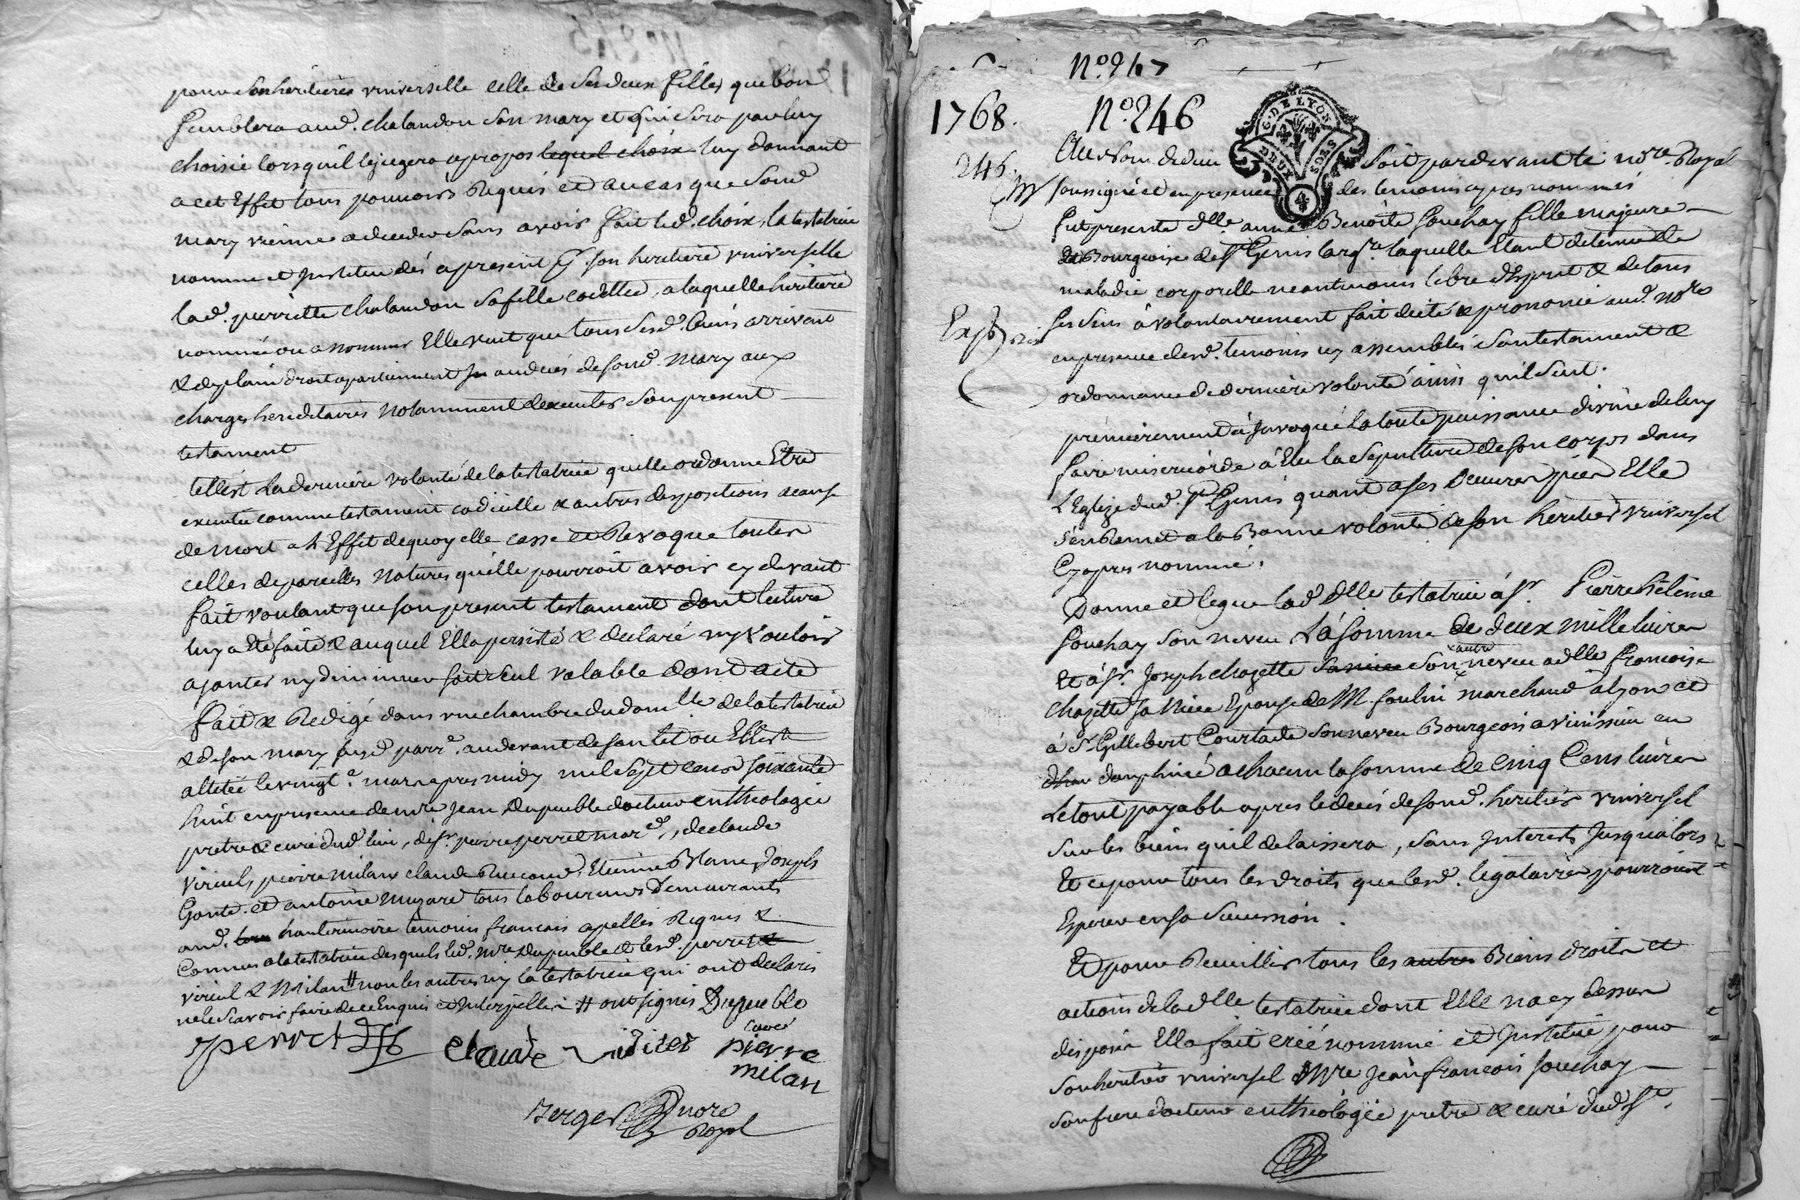 pour son heritiere universelle celle de ses deux filles que bon
semblera aud. chalandon son mary et qui sera par luy
choisie lors quil le jugera apropos lequel choix luy donnant
a cet Effet tous pouvoirs Requis et au cas que sond.
mary vienne a deceder sans avoir fait led. choix, la testatrice
nomme et Institue dés apresent pr. son heritiere universelle
lad. pierrette chalandon sa fille cadette, a laquelle heritiere
nommée ou a nommer Elle veut que tous sesd. biens arrivent
& de plain droit apartiennent au deces de sond. mary aux
charges hereditaires notamment dexecuter son present
testament
telle est La derniere volonté de la testatrice quelle ordonne Etre
executée comme testament codicille & autres dispositions a cause
de mort a L'Effet de quoy elle casse et Revoque toutes
celles de pareilles natures quelle pourroit avoir cy devant
fait voulant que son present testament dont lecture
luy a été faite & auquel Ella persisté & declaré ny vouloir
ajouter ny diminuer soit seul valable dont acte
fait & Redigé dans une chambre du domille de la testatrice
& de son mary susd. parr. au devant de son lit ou Elle est
alitée le vingt mars apres midy mil sept cens soixante
huit en presence de mre Jean Dupuble docteur en theologie
pretre & curé dud. lieu, de sr. pierre perret mar. , de claude
viricel, pierre milan claude Etienne Blanc, Joseph
Gonte. et antoine mugare tous laboureurs Demeurants
aud. hauterivoire temoins francais apellés Requis &
Connus a la testatrice desquels led. mre. Dupuble & lesd. perret
viricel & Milan # non les autres ny la testatrice qui ont declarés
ne le Scavoir faire de ce Enquis et Interpellés # ont signés Dupuble
curé
perret claude viricel pierre
milan
Berger nore
Royal
No. 247
1768. No. 246
246.
Au nom de dieu Soit pardevant le nore. Royal
soussigné et en presence des temoins cy apres nommés
fut presente dlle anne Benoite Souchay fille majeure
Bourgeoise de St. Genis largre. laquelle Etant detenue de
maladie corporelle neantmoins libre d'Esprit & de tous
ses sens à volontairement fait dicté & prononcé aud. nore
en presence desd. temoins cy assemblés son testament &
ordonnance de derniere volonté ainsi quil suit.
premierement à Invoqué la toute puissance divine de luy
faire misericorde à Elu la sepulture de son corps dans
L'Eglize dud. St Genis quant a ses oeuvres pies Elle
s'en Remet a la Bonne volonté de son heritier universel
Cy apres nommé.
Donne et legue lad. dlle testatrice à sr. Pierre heleine
Souchay son neveu La somme de deux mille livres
autre
Et à sr. Joseph chazette son neveu a dlle francoise
chazette sa Niece Epouse de M. foulin marchand à lyon et
à Sr Gillebert Courtade son neveu Bourgeois a vinissieu en
dauphiné a chacun la somme de Cinq Cens livres
Le tout payable apres le deces de sond. heritier universel
sur les biens quil delaissera, sans Interets Jusqualors
Et ce pour tous les droits que lesd. legataires pourroient
Esperer en sa succession.
Et pour Recueillir tous les autres Biens droits et
actions de lad dlle testatrice dont Elle na cy dessus
disposé Ella fait créé nommé et Institué pour
son heritier universel Mre Jean francois Souchay
son frere docteur en theologie pretre & curé dud St.